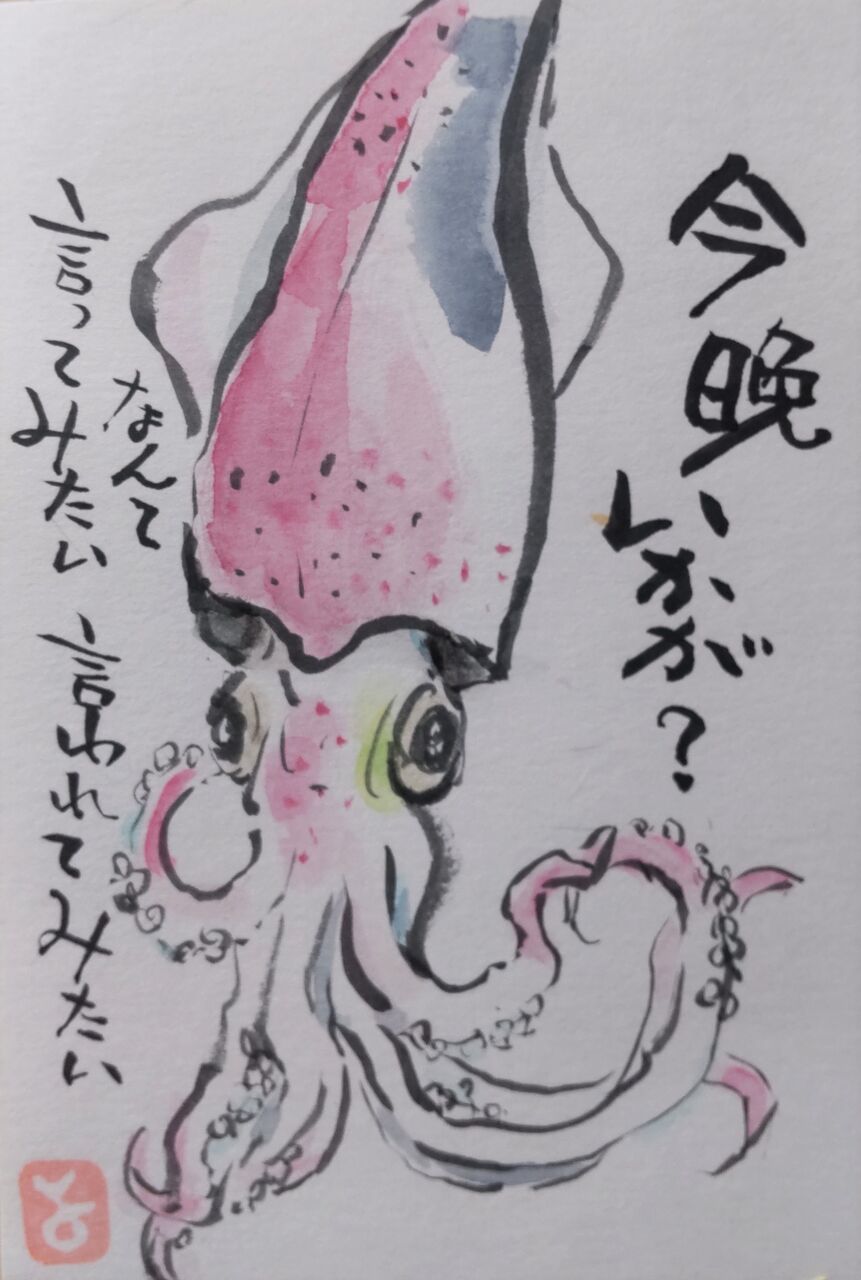 今晩
いかが?
なんて
言ってみたい 言われてみたい
と